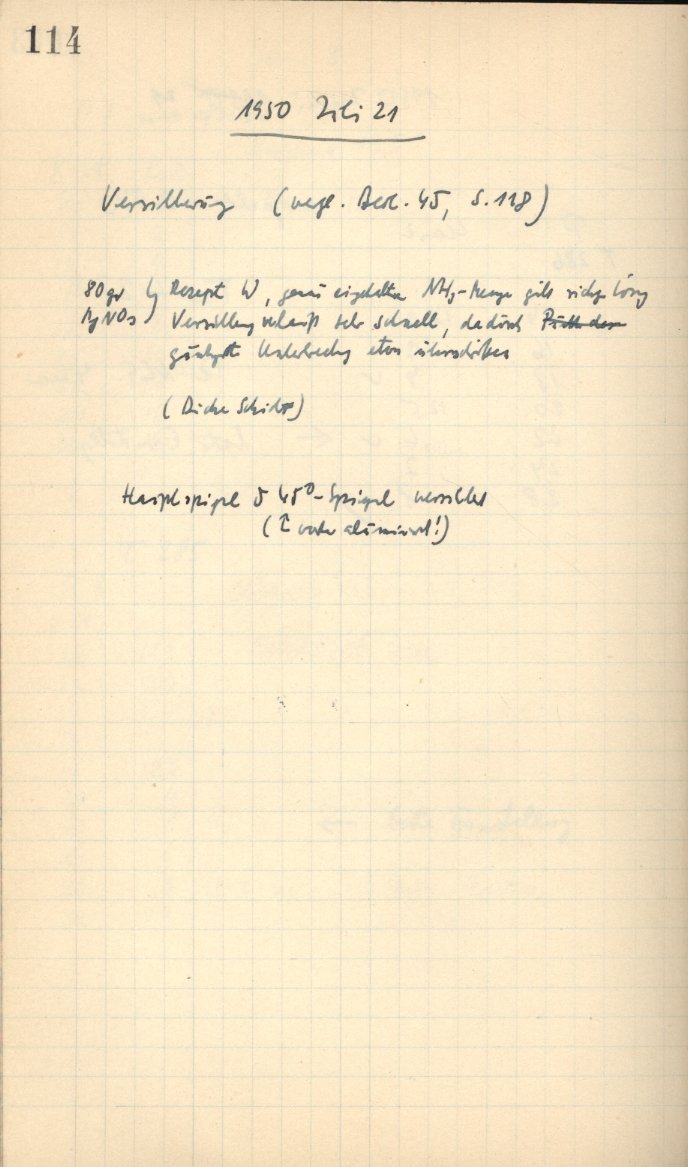 114
1950 Juli 21
Versilberung (vergl. Beob. 45, S. 118)
80 gr Rezept W, genau eingehaltene NH3-Menge gibt richtige Lösung
AgNO3 Versilberung verläuft sehr schnell, dadurch
günstigste Unterbrechung etwas überschritten
(Dicke Schicht)
Hauptspiegel u 45°-Spiegel versilbert
(↑ vorher aluminisiert!)